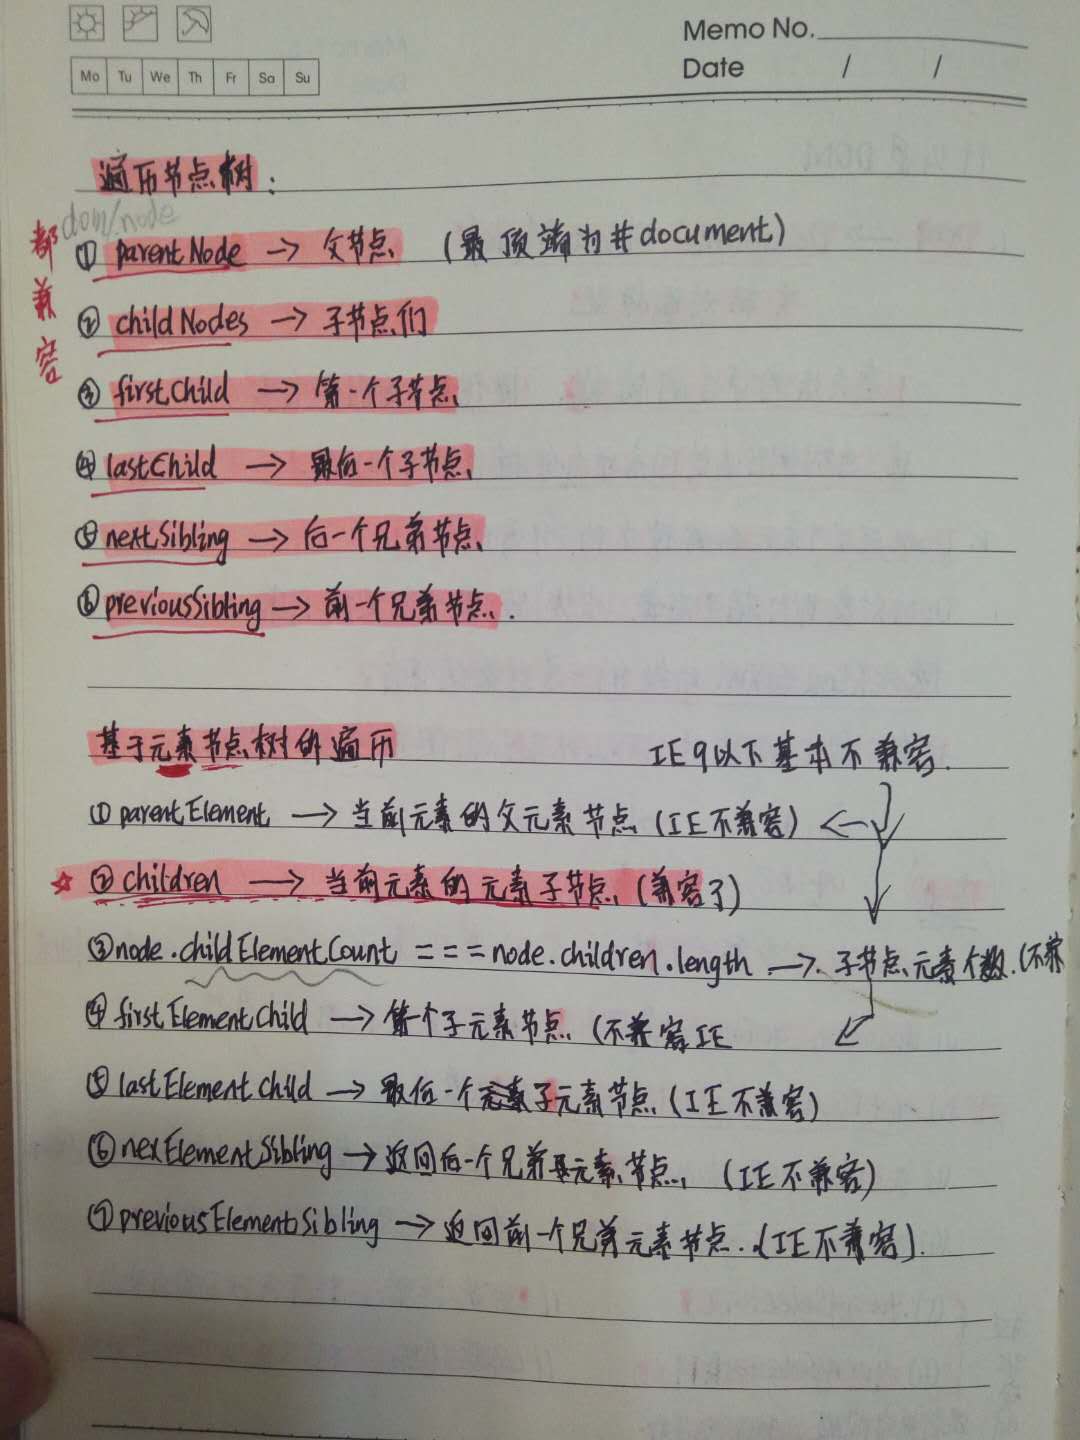 Memo No.
Date / /
Mo Tu We Th Fr Sa Su
遍历节点树:
dom/node
都兼容
① parentNode → 父节点 (最顶端为#document)
② childNodes → 子节点们
③ firstChild → 第一个子节点
④ lastChild → 最后一个子节点
⑤ nextSibling → 后一个兄弟节点
⑥ previousSibling → 前一个兄弟节点.
基于元素节点树的遍历
IE9以下基本不兼容.
① parentElement → 当前元素的父元素节点 (IE不兼容)
☆ ② children → 当前元素的元素子节点 (兼容了)
③ node.childElementCount === node.children.length → 子节点元素个数.(不兼
④ firstElementChild → 第一个子元素节点 (不兼容IE
⑤ lastElementChild → 最后一个子元素节点 (IE不兼容)
⑥ nexElementSibling → 返回后一个兄弟元素节点 (IE不兼容)
⑦ previousElementSibling → 返回前一个兄弟元素节点.(IE不兼容).